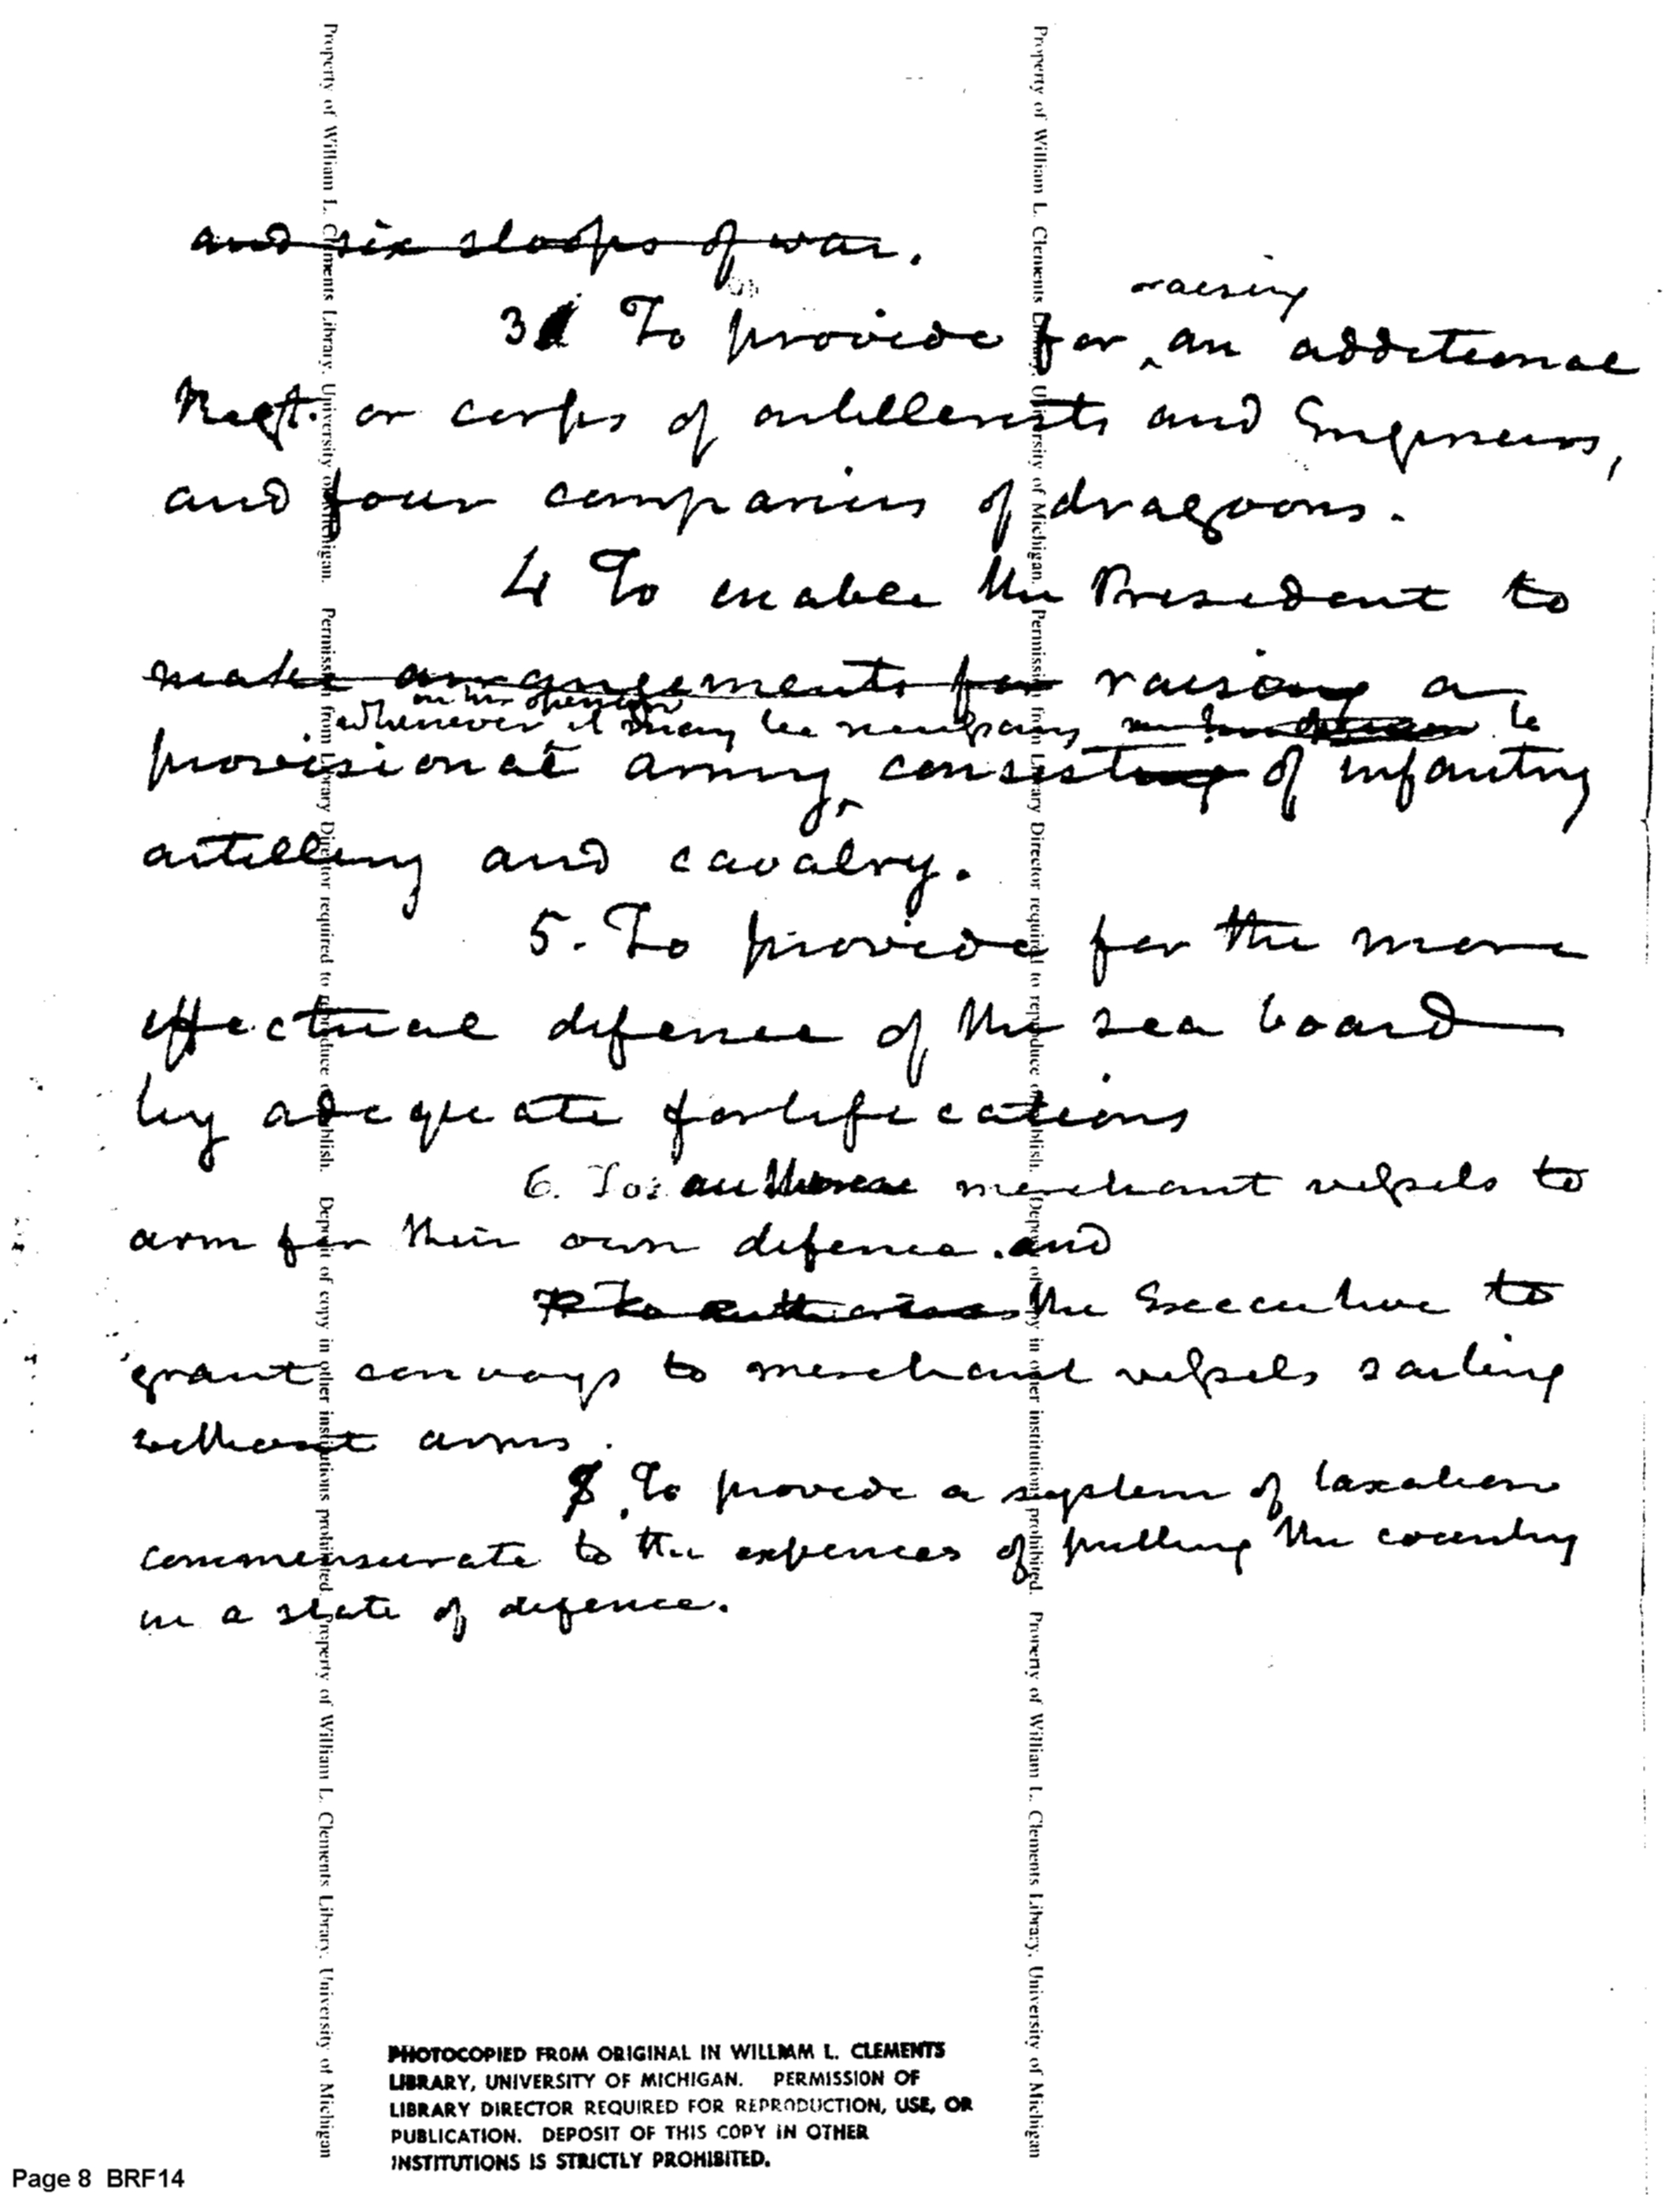 and six sloops of war.
raising
3 To provide for ^ an additional
Regt. or corps of artillerists and Engineers,
and four companies of dragoons.
4 To enable the President to
make arrangements for raising a
on his opinion
whenever it may be necessary to
provisional army, consisting of infantry
artillery and cavalry.
5. To provide for the more
effectual defence of the sea board
by adequate fortifications
6. To authorise merchant vessels to
arm for their own defence. and
To authorise the Executive to
grant convoys to merchant vessels sailing
without arms.
8. To provide a system of taxation
commensurate to the expences of putting the country
in a state of defence.
PHOTOCOPIED FROM ORIGINAL IN WILLIAM L. CLEMENTS
LIBRARY, UNIVERSITY OF MICHIGAN. PERMISSION OF
LIBRARY DIRECTOR REQUIRED FOR REPRODUCTION, USE, OR
PUBLICATION. DEPOSIT OF THIS COPY IN OTHER
INSTITUTIONS IS STRICTLY PROHIBITED.
Page 8 BRF14
Property of William L. Clements Library, University of Michigan. Permission from Library Director required to reproduce or publish. Deposit of copy in other institutions prohibited. Property of William L. Clements Library, University of Michigan
Property of William L. Clements Library, University of Michigan. Permission from Library Director required to reproduce or publish. Deposit of copy in other institutions prohibited. Property of William L. Clements Library, University of Michigan